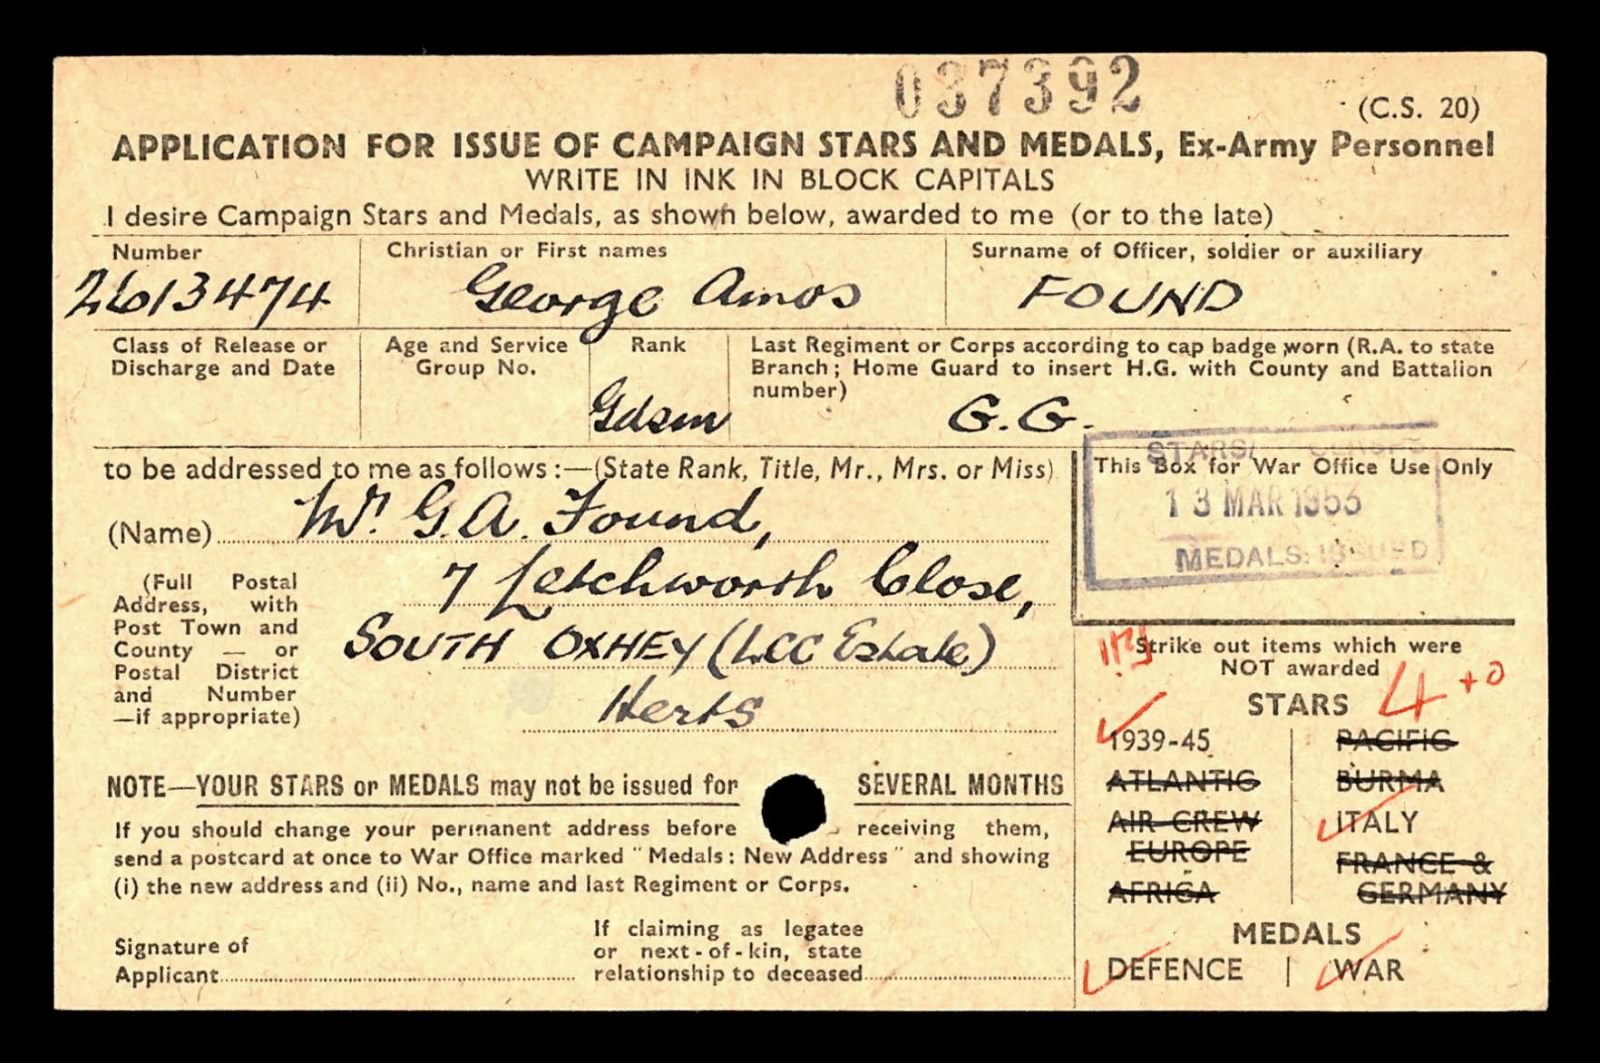 037392
(C.S. 20)
APPLICATION FOR ISSUE OF CAMPAIGN STARS AND MEDALS, Ex-Army Personnel
WRITE IN INK IN BLOCK CAPITALS
I desire Campaign Stars and Medals, as shown below, awarded to me (or to the late)
Number Christian or First names Surname of Officer, soldier or auxiliary
2613474 George Amos FOUND
Class of Release or Discharge and Date
Age and Service Group No.
Rank
Gdsm
Last Regiment or Corps according to cap badge worn (R.A. to state
Branch; Home Guard to insert H.G. with County and Battalion
number)
G.G.
to be addressed to me as follows:—(State Rank, Title, Mr., Mrs. or Miss)
(Name) Mr. G.A. Found,
(Full Postal
Address, with
Post Town and
County — or
Postal District
and Number
—if appropriate)
7 Letchworth Close,
SOUTH OXHEY (LCC Estate)
Herts
This Box for War Office Use Only
STARS/
13 MAR 1953
MEDALS ISSUED
NOTE—YOUR STARS or MEDALS may not be issued for SEVERAL MONTHS
If you should change your permanent address before receiving them,
send a postcard at once to War Office marked "Medals: New Address" and showing
(i) the new address and (ii) No., name and last Regiment or Corps.
Signature of
Applicant
If claiming as legatee
or next-of-kin, state
relationship to deceased
Strike out items which were
NOT awarded
STARS 4 + 0
1939-45 PACIFIC
ATLANTIC BURMA
AIR CREW ITALY
EUROPE FRANCE &
AFRICA GERMANY
MEDALS
DEFENCE | WAR